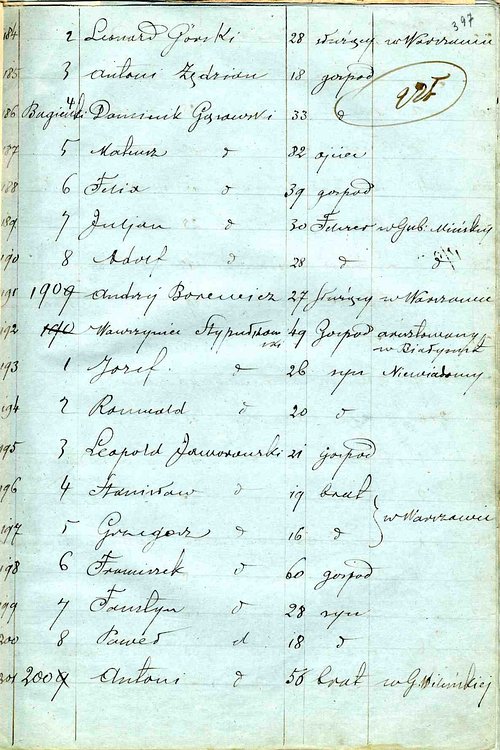 397
184 2 Leonard Górski 28 służący w Warszawie
185 3 Antoni Zędzian 18 gospod
186 4 Dominik Gąsowski 33 d
187 5 Mateusz d 32 ojciec
188 6 Felix d 39 gospod
189 7 Juljan d 30 w Gub. Mińskiej
190 8 Adolf d 28 d d
191 1909 Andrzej Borewicz 27 służący w Warszawie
192 190 Wawrzyniec Stypułkow 49 Gospod aresztowany
ski w Białymst
193 1 Józef d 26 syn Niewiadomy
194 2 Romuald d 20 d
195 3 Leopold Jaworowski 21 gospod
196 4 Stanisław d 19 brat
w Warszawie
197 5 Grzegorz d 16 d
198 6 Franciszek d 60 gospod
199 7 Faustyn d 28 syn
200 8 Paweł d 18 d
201 2009 Antoni d 56 brat w G. Wileńskiej